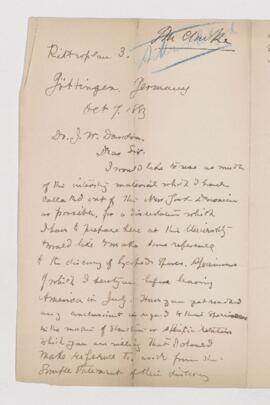 Mr Clarke
Ritterplan 3.
Göttingen, Germany
Oct 7. 1883
Dr. J. W. Dawson.
Dear Sir.
I would like to use as much
of the interesting material which I have
collected out of the New York Devonian
as possible, for a dissertation which
I have to prepare here at this University
I would like to make some reference
to the discovery of Lycopod Spores, Specimens
of which I sent you before leaving
America in July. Have you yet reached
any conclusions in regard to these specimens
in the matter of structure or specific relation
which you are willing that I should
make reference to, aside from the
simple statement of their discovery